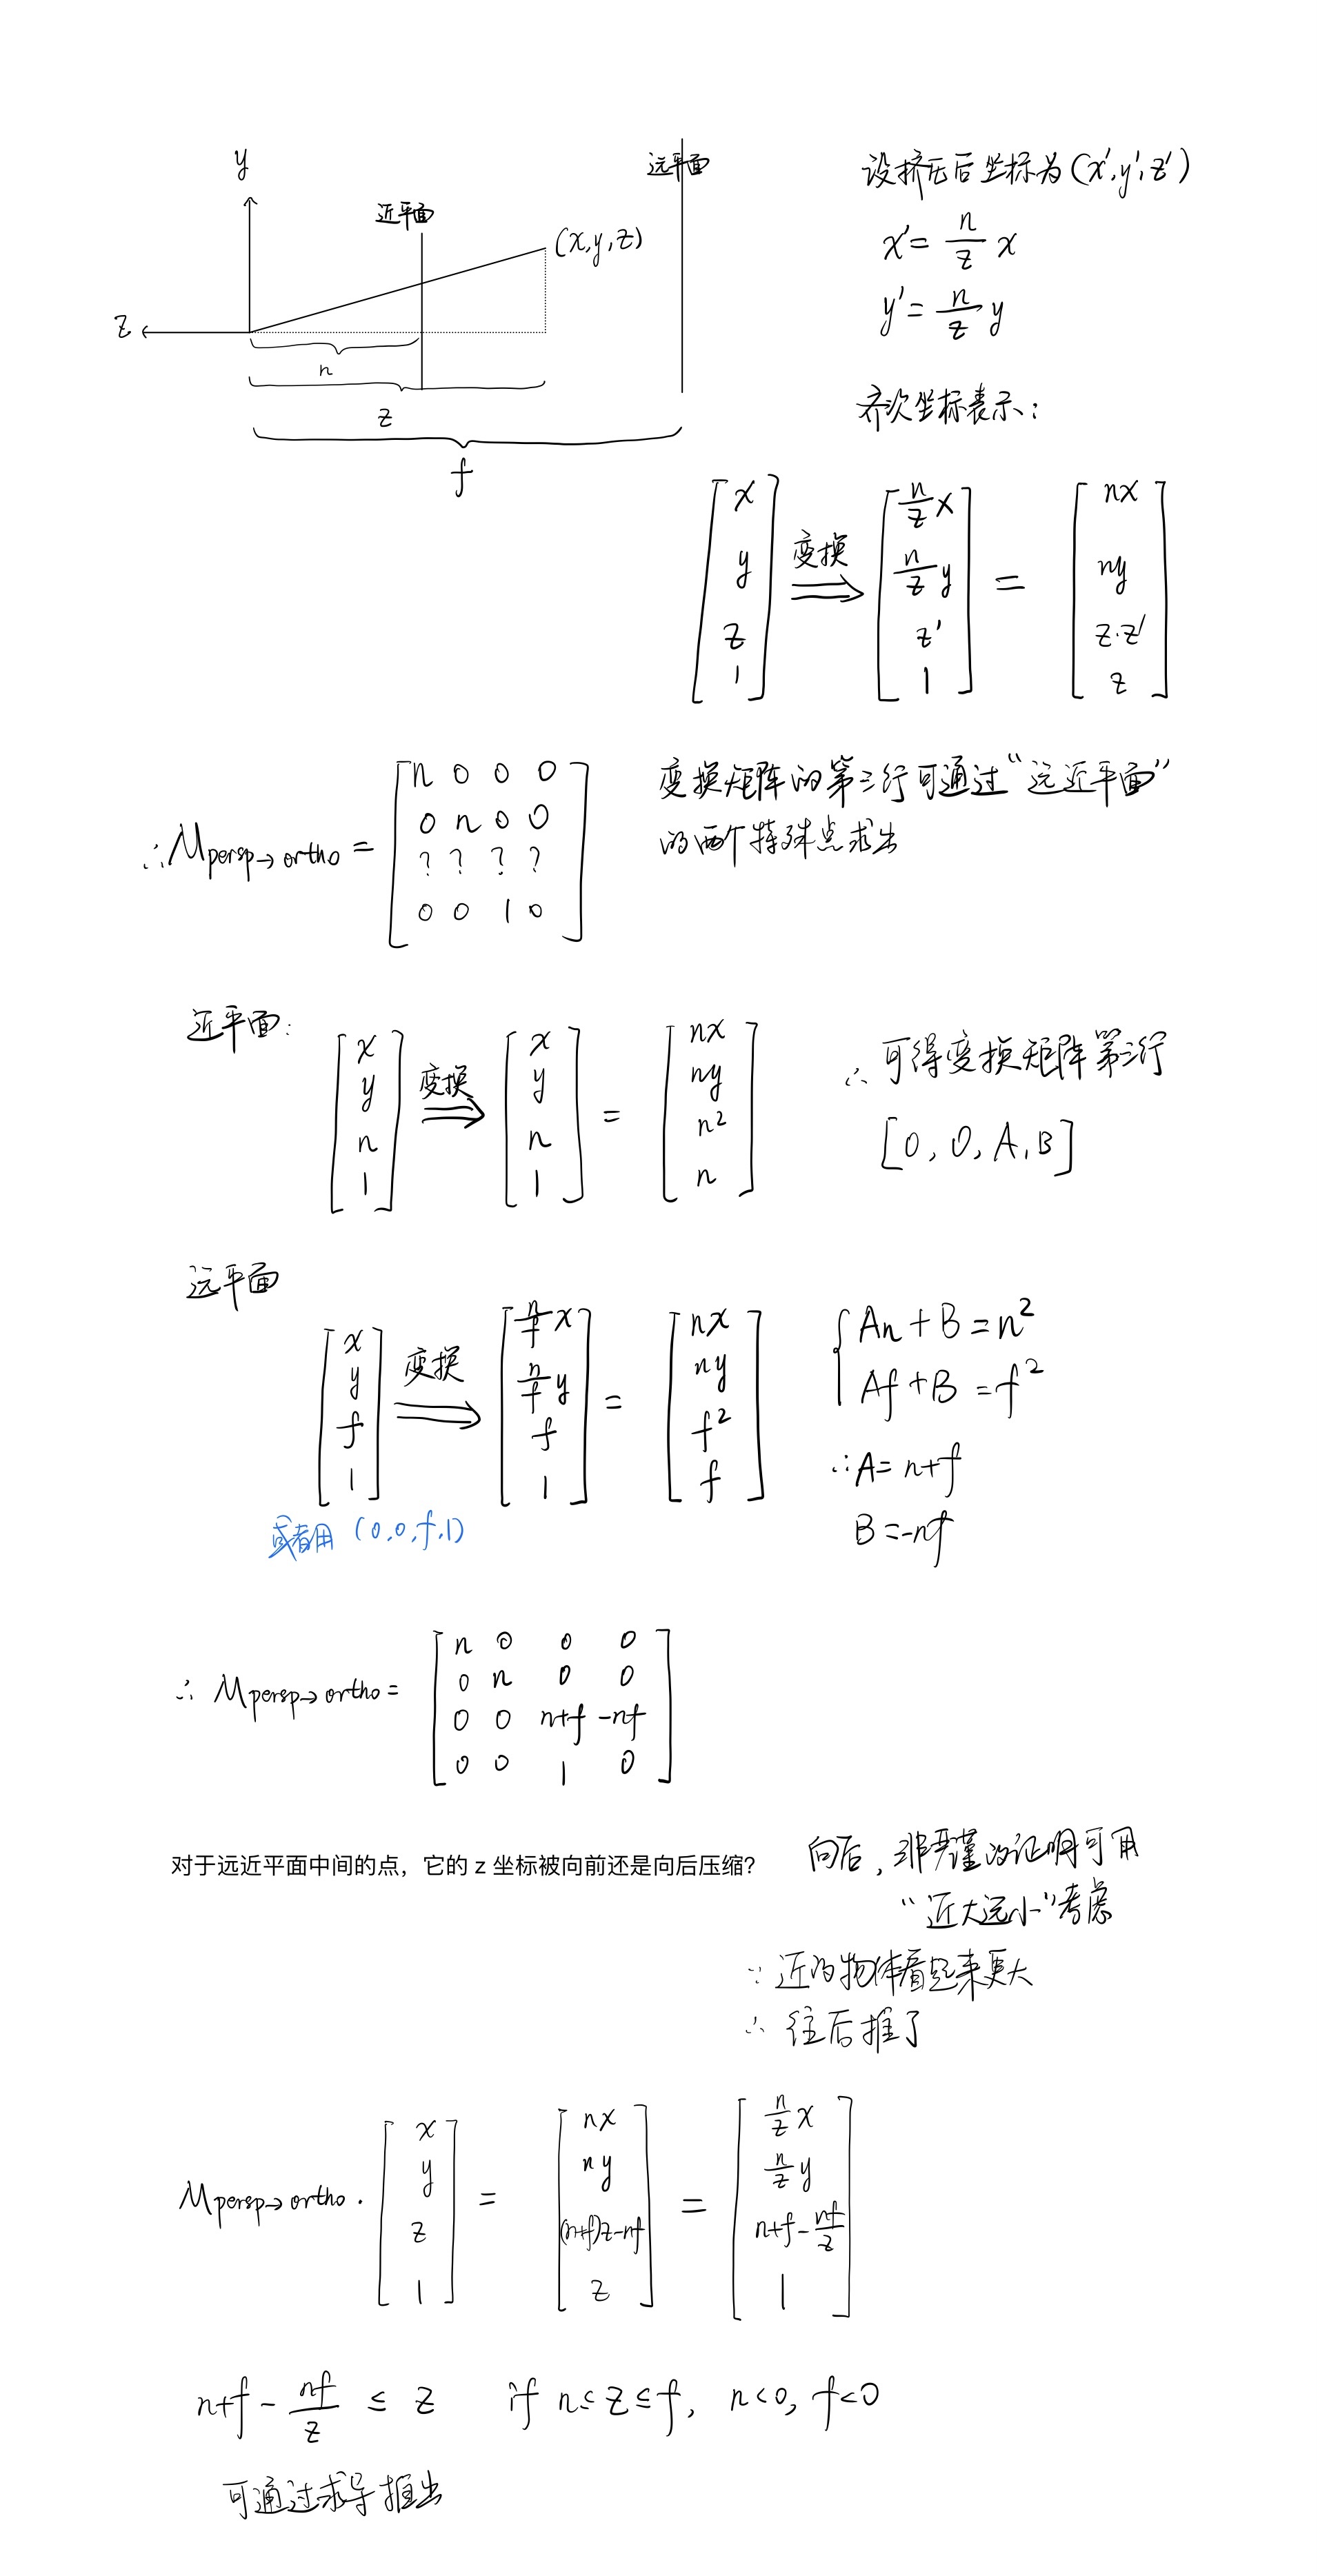 y
近平面
远平面
(x,y,z)
z
n
z
f
设挤压后坐标为(x',y',z')
x' = n/z x
y' = n/z y
齐次坐标表示:
[x y z 1] 变换 ⇒ [n/z x, n/z y, z', 1] = [nx, ny, z·z', z]
∴ Mpersp→ortho = [n 0 0 0
0 n 0 0
? ? ? ?
0 0 1 0]
变换矩阵的第三行可通过“远近平面”
的两个特殊点求出
近平面:
[x y n 1] 变换 ⇒ [x y n 1] = [nx ny n² n]
∴ 可得变换矩阵第三行
[0, 0, A, B]
远平面
[x y f 1] 变换 ⇒ [n/f x, n/f y, f, 1] = [nx ny f² f]
或者用 (0,0,f,1)
{An + B = n²
Af + B = f²
∴ A = n+f
B = -nf
∴ Mpersp→ortho = [n 0 0 0
0 n 0 0
0 0 n+f -nf
0 0 1 0]
对于远近平面中间的点，它的 z 坐标被向前还是向后压缩?
向后, 非严谨的证明可用
“近大远小”考虑
∵ 近的物体看起来更大
∴ 往后推了
Mpersp→ortho · [x y z 1] = [nx, ny, (n+f)z-nf, z] = [n/z x, n/z y, n+f - nf/z, 1]
n+f - nf/z ≤ z if n≤z≤f, n<0, f<0
可通过求导推出